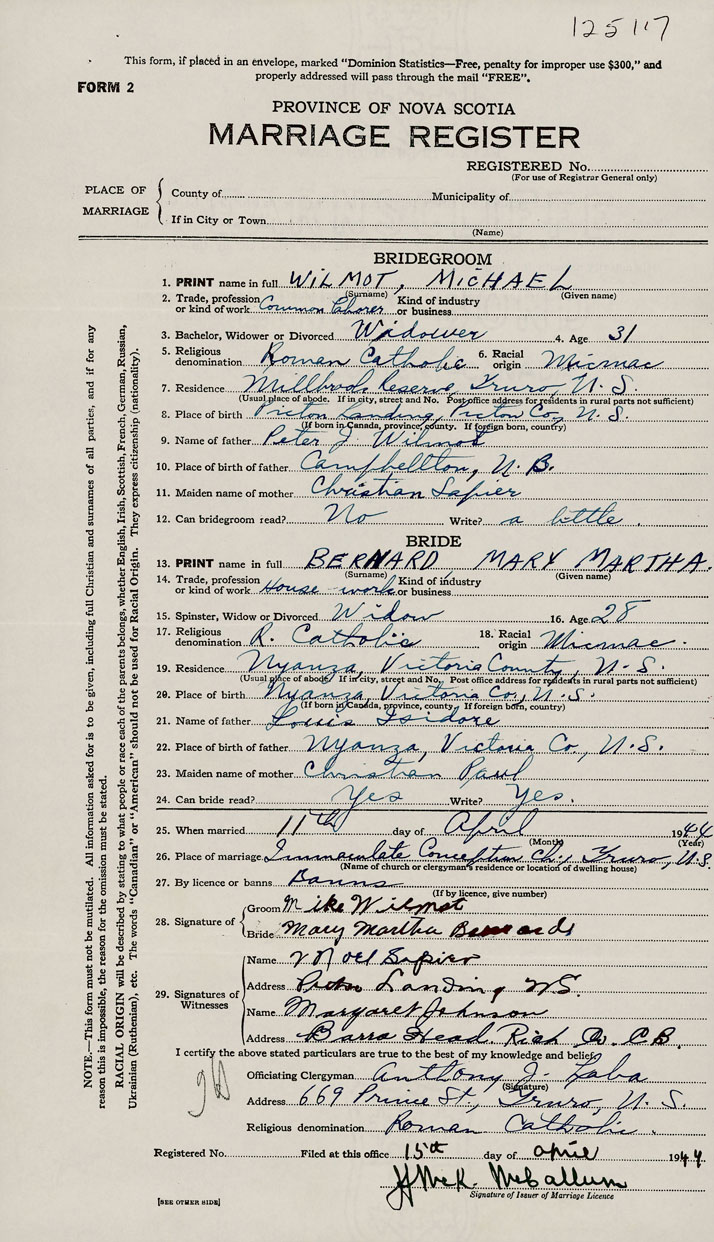 125117
This form, if placed in an envelope, marked "Dominion Statistics—Free, penalty for improper use $300," and
properly addressed will pass through the mail "FREE".
FORM 2
PROVINCE OF NOVA SCOTIA
MARRIAGE REGISTER
REGISTERED No.
(For use of Registrar General only)
PLACE OF MARRIAGE
County of
Municipality of
If in City or Town
(Name)
BRIDEGROOM
1. PRINT name in full WILMOT, MICHAEL
(Surname) (Given name)
2. Trade, profession or kind of work Common Laborer Kind of industry or business
3. Bachelor, Widower or Divorced Widower 4. Age 31
5. Religious denomination Roman Catholic 6. Racial origin Micmac
7. Residence Millbrook Reserve, Truro, N.S.
(Usual place of abode. If in city, street and No. Post office address for residents in rural parts not sufficient)
8. Place of birth Pictou Landing, Pictou Co., N.S.
(If born in Canada, province, county. If foreign born, country)
9. Name of father Peter J. Wilmot
10. Place of birth of father Campbellton, N.B.
11. Maiden name of mother Christian Sapier
12. Can bridegroom read? No Write? a little.
BRIDE
13. PRINT name in full BERNARD MARY MARTHA.
(Surname) (Given name)
14. Trade, profession or kind of work House-work Kind of industry or business
15. Spinster, Widow or Divorced Widow 16. Age 28
17. Religious denomination R. Catholic 18. Racial origin Micmac.
19. Residence Nyanza, Victoria County, N.S.
(Usual place of abode. If in city, street and No. Post office address for residents in rural parts not sufficient)
20. Place of birth Nyanza, Victoria Co., N.S.
(If born in Canada, province, county. If foreign born, country)
21. Name of father Louis Isidore
22. Place of birth of father Nyanza, Victoria Co., N.S.
23. Maiden name of mother Christian Paul
24. Can bride read? Yes Write? Yes.
25. When married 11th day of April 1944
(Month) (Year)
26. Place of marriage Immaculate Conception Ch., Truro, N.S.
(Name of church or clergyman's residence or location of dwelling house)
27. By licence or banns Banns
(If by licence, give number)
28. Signature of
Groom Mike Wilmot
Bride Mary Martha Bernards
29. Signatures of Witnesses
Name Noel Sapier
Address Pictou Landing NS.
Name Margaret Johnson
Address Barra Head Rich Co. C.B.
I certify the above stated particulars are true to the best of my knowledge and belief.
Officiating Clergyman Anthony J.
(Signature)
Address 669 Prince St., Truro, N.S.
Religious denomination Roman Catholic.
Registered No. Filed at this office 15th day of April 1944
McK McCallum
Signature of Issuer of Marriage Licence
[SEE OTHER SIDE]
NOTE.—This form must not be mutilated. All information asked for is to be given, including full Christian and surnames of all parties, and if for any
reason this is impossible, the reason for the omission must be stated.
RACIAL ORIGIN will be described by stating to what people or race each of the parents belongs, whether English, Irish, Scottish, French, German, Russian,
Ukrainian (Ruthenian), etc. The words "Canadian" or "American" should not be used for Racial Origin. They express citizenship (nationality).